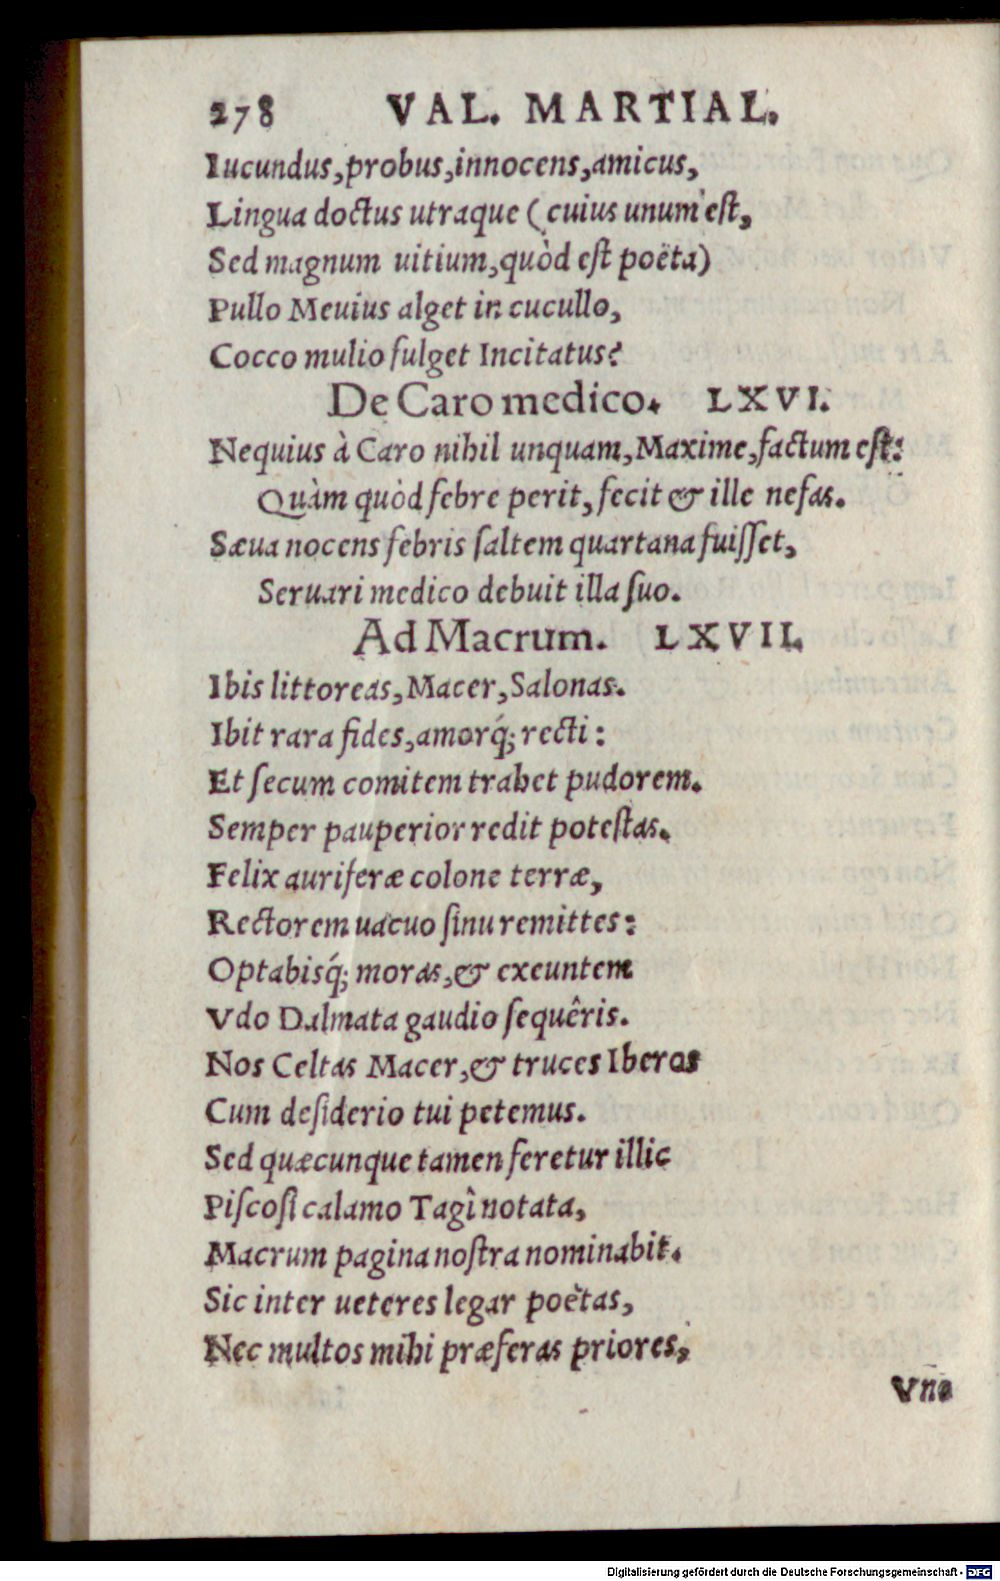 278 VAL. MARTIAL.
Iucundus, probus, innocens, amicus,
Lingua doctus utraque (cuius unum est,
Sed magnum uitium, quòd est poëta)
Pullo Meuius alget in cucullo,
Cocco mulio fulget Incitatus?
De Caro medico. LXVI.
Nequius à Caro nihil unquam, Maxime, factum est:
Quàm quòd febre perit, fecit & ille nefas.
Sæua nocens febris saltem quartana fuisset,
Seruari medico debuit illa suo.
Ad Macrum. LXVII.
Ibis littoreas, Macer, Salonas.
Ibit rara fides, amorq́; recti:
Et secum comitem trahet pudorem.
Semper pauperior redit potestas.
Felix auriferæ colone terræ,
Rectorem uacuo sinu remittes:
Optabisq́; moras, & exeuntem
Vdo Dalmata gaudio sequêris.
Nos Celtas Macer, & truces Iberos
Cum desiderio tui petemus.
Sed quæcunque tamen feretur illic
Piscosi calamo Tagi notata,
Macrum pagina nostra nominabit.
Sic inter ueteres legar poëtas,
Nec multos mihi præferas priores,
Vno
Digitalisierung gefördert durch die Deutsche Forschungsgemeinschaft - DFG